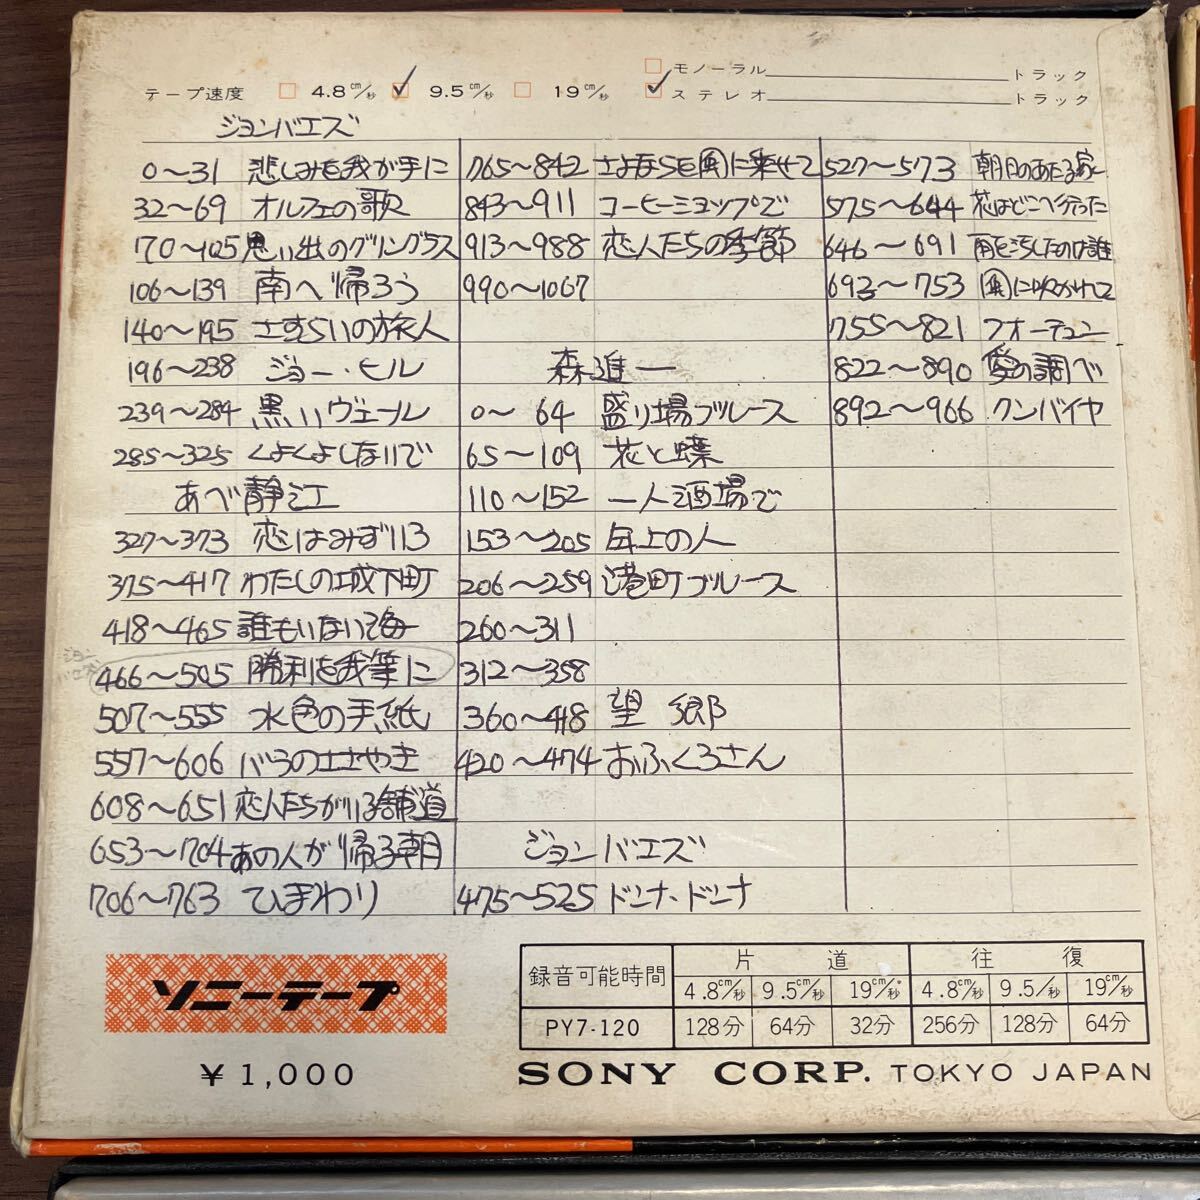 テープ速度 4.8cm/秒 9.5cm/秒 19cm/秒
モノーラル トラック
ステレオ トラック
ジョンバエズ
0〜31 悲しみを我が手に
32〜69 オルフェの歌
70〜105 思い出のグリングラス
106〜139 南へ帰ろう
140〜195 さすらいの旅人
196〜238 ジョー・ヒル
239〜284 黒いヴェール
285〜325 くよくよしないで
あべ静江
327〜373 恋はみずいろ
375〜417 わたしの城下町
418〜465 誰もいない海
466〜505 勝利を我等に
507〜555 水色の手紙
557〜606 バラのささやき
608〜651 恋人たちがいる舗道
653〜704 あの人が帰る朝
706〜763 ひまわり
765〜842 さよならを風に乗せて
843〜911 コーヒーショップで
913〜988 恋人たちの季節
990〜1067
森進一
0〜64 盛り場ブルース
65〜109 花と蝶
110〜152 一人酒場で
153〜205 年上の人
206〜259 港町ブルース
260〜311
312〜358
360〜418 望郷
420〜474 おふくろさん
ジョンバエズ
475〜525 ドンナ・ドンナ
527〜573 朝日のあたる家
575〜644 花はどこへ行った
646〜691 雨を汚したのは誰
693〜753 風に吹かれて
755〜821 フォーチュン
822〜890 愛の調べ
892〜966 クンバイヤ
ソニーテープ
¥1,000
録音可能時間 片道 往復
4.8cm/秒 9.5cm/秒 19cm/秒 4.8cm/秒 9.5/秒 19cm/秒
PY7-120 128分 64分 32分 256分 128分 64分
SONY CORP. TOKYO JAPAN